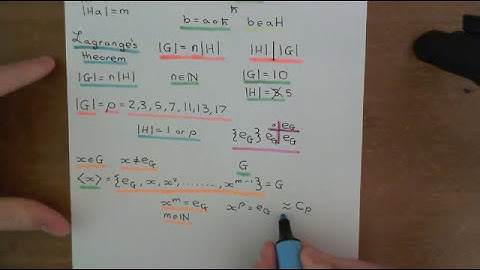 |Ha| = m
b = a∘h b ∈ aH
Lagrange's theorem |G| = n|H| |H| | |G|
|G| = n|H| n ∈ ℕ |G| = 10
|H| = 5
|G| = p = 2,3,5,7,11,13,17
|H| = 1 or p {e_G}
∘ e_G
e_G e_G
x ∈ G x ≠ e_G G
⟨x⟩ = {e_G, x, x², ......., x^{m-1}} = G
x^m = e_G x^p = e_G ≈ C_p
m ∈ ℕ